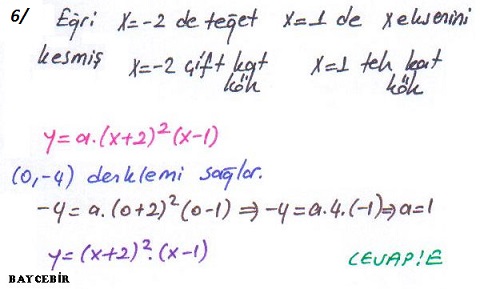 6/ Eğri x=-2 de teğet x=1 de x eksenini
kesmiş x=-2 çift kat kök x=1 tek kat kök
y=a.(x+2)²(x-1)
(0,-4) denklemi sağlar.
-4=a.(0+2)²(0-1)⇒-4=a.4.(-1)⇒a=1
y=(x+2)².(x-1) CEVAP:E
BAYCEBİR